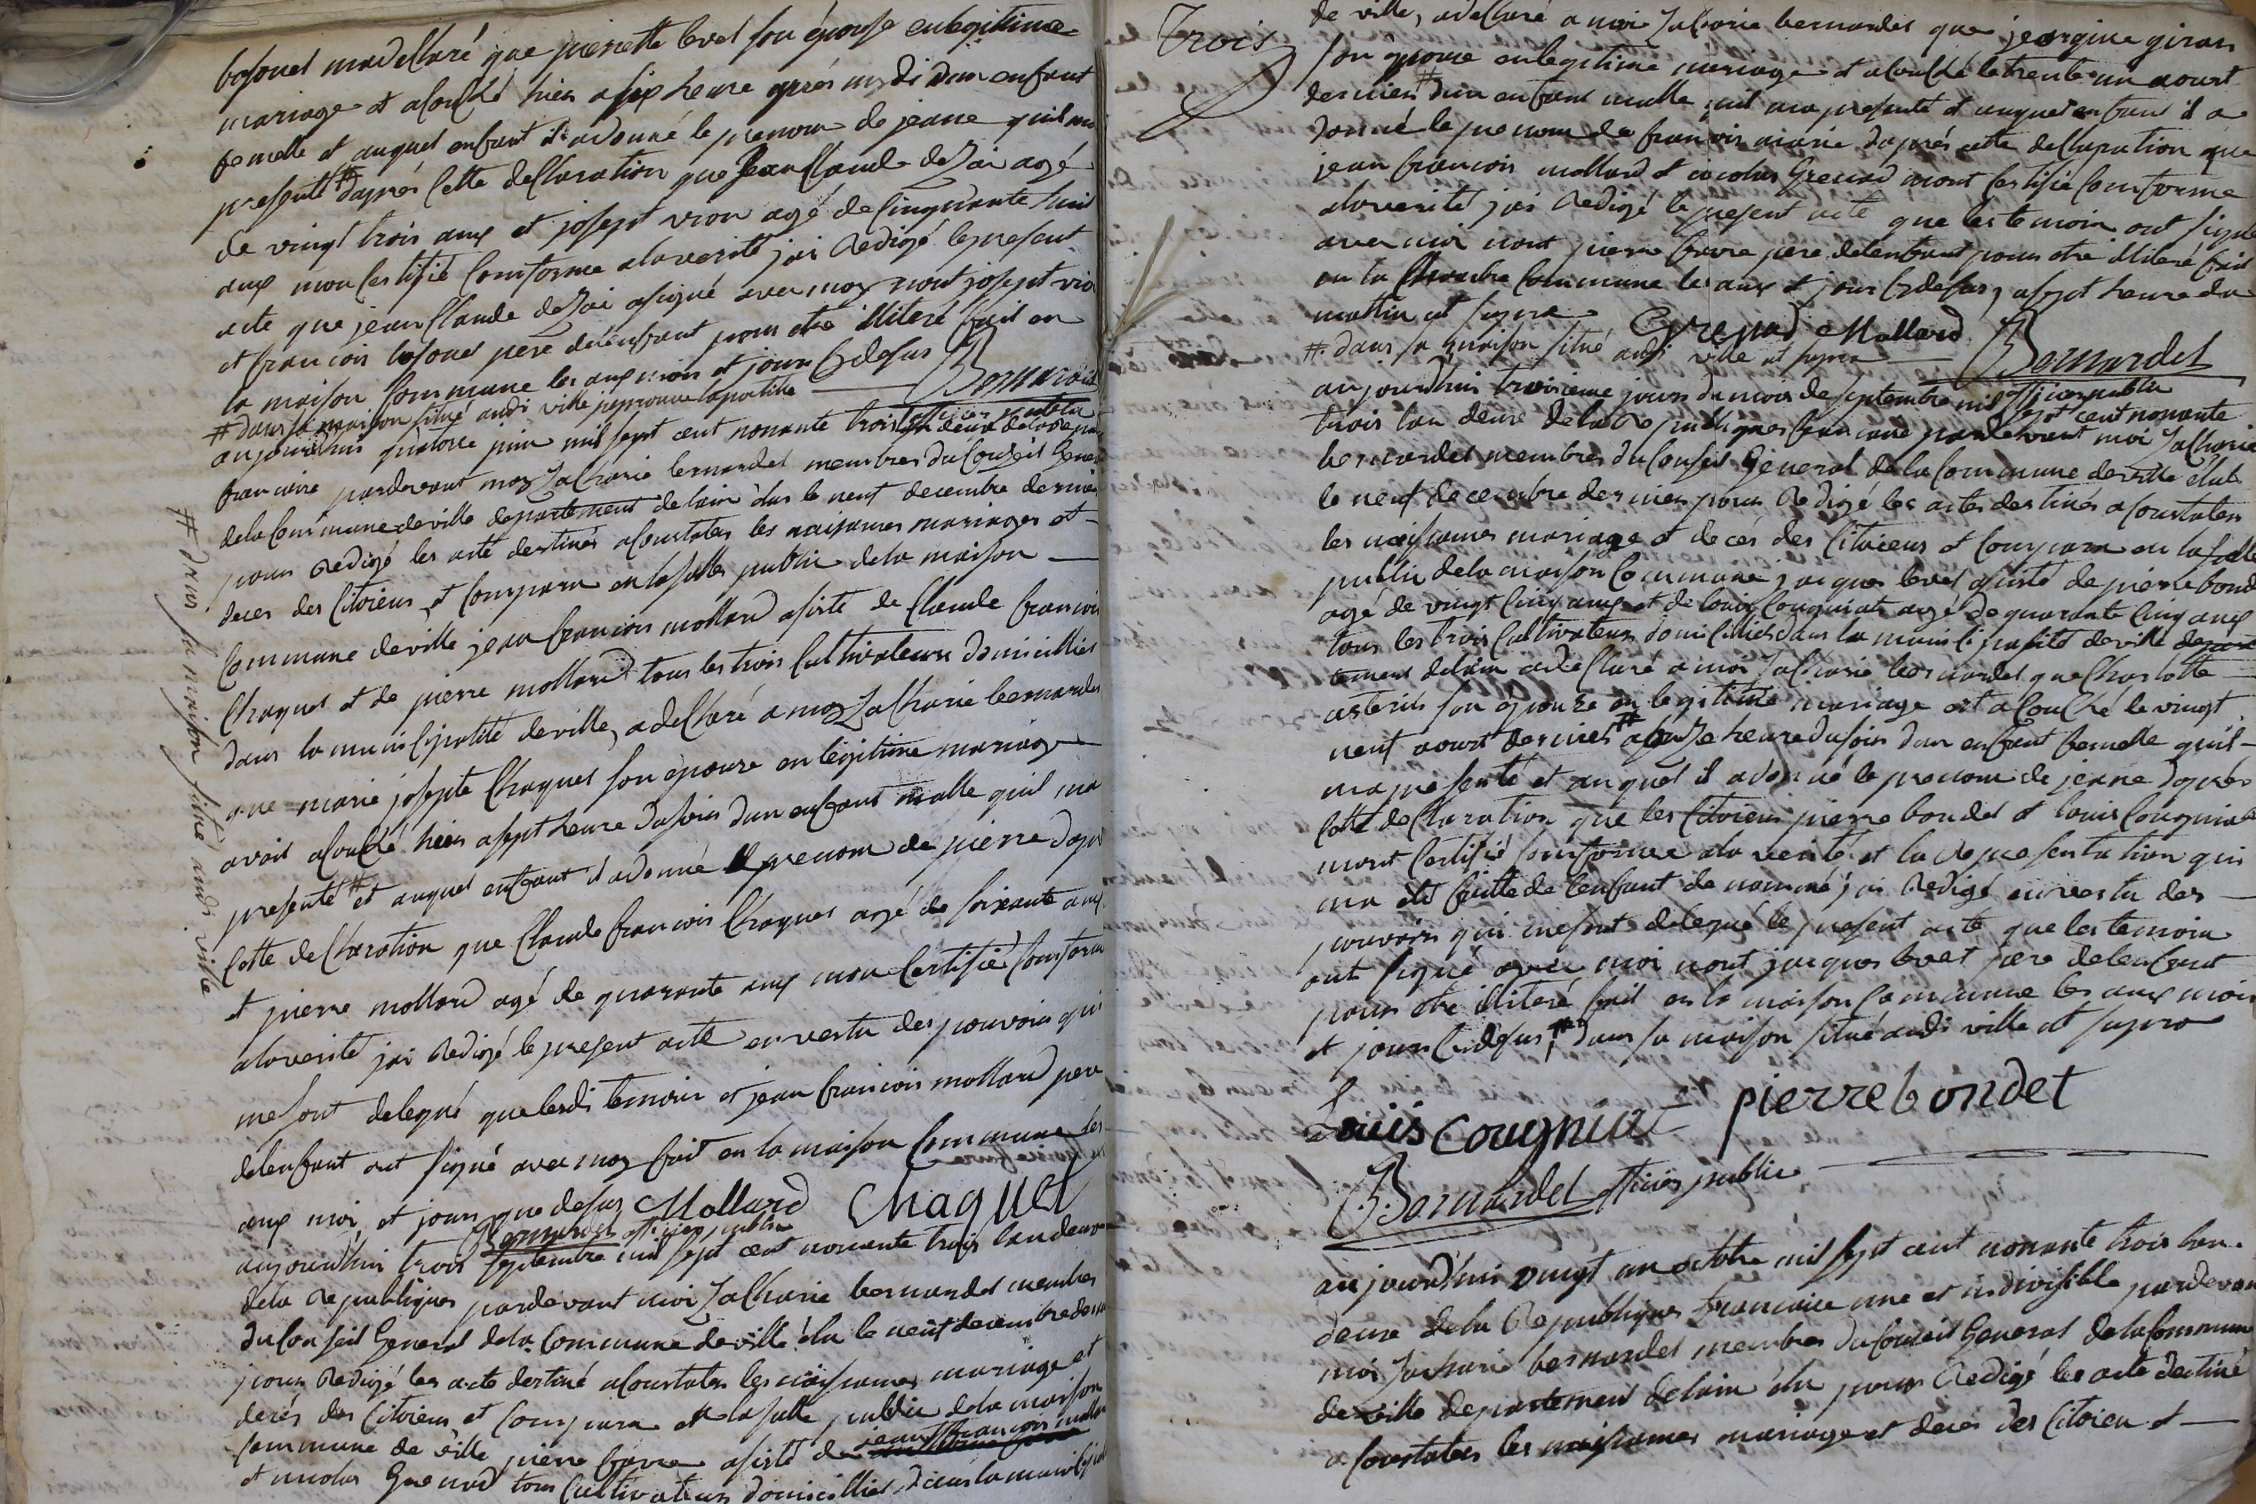 bosonet ma declaré que pierrette levet son épouse en legitime
mariage et acouché hier a six heure aprés midi d'un enfant
femelle et auquel enfant il a donné le prenom de jeane quil ma
presenté # daprés cette declaration que jean claude dezai agé
de vingt trois ans et josept vion agé de cinquante huit
ans mon certifié comforme a la verité jai redigé le present
acte que jean claude dezai a signé avec moy nont josept vio
et francois bosonet pere de lenfant pour etre illiteré fait en
la maison commune les ans mois et jour cy desus
# dans sa maison situé audi ville
Bernardet officier public
aujourdhui quatorse juin mil sept cent nonante trois lan deux de la repu
francaise pardevant moy Zacharie bernardet membres du Conseil Gener
de la Commune de ville departement de lain élus le neuf decembre dernier
pour redigé les acte destinés a constates les naisances mariages et
deces des Citoiens et compara en la salle public de la maison
Commune de ville jean francois mollard asisté de Claude francois
Chaquet et de pierre mollard tous les trois Cultivateurs domicilliés
dans la municipalité de ville, a declaré a moy Zacharie bernardet
que marie josepte Chaquet son epouse en legitime mariage
avoit acouché hier a sept heure du soir dun enfant malle quil ma
presenté # et auquel enfant il a donné le prenom de pierre dapr
cette declaration que Claude francois Chaquet agé de soixante ans
et pierre mollard agé de quarante ans mon certifié conforme
a la verité jai redigé le present acte en vertu des pouvoirs qui
me sont delegué que lesdi temoin et jean francois mollard pere
de lenfant ont signé avec moy fait en la maison Commune les
ans moi et jour que desus Mollard Chaquet
Bernardet officier public
# dans sa maison situé audi ville
aujourdhui trois septembre mil sept cent nonante trois lan deux
de la republiques pardevant moi Zacharie bernardet membres
du Conseil General de la Commune de ville élu le neuf decembre dernier
pour redigé les acte destiné a constates les naisances mariage et
decés des Citoiens et compara en la salle public de la maison
Commune de ville pierre favre asisté de jean francois mollar
et nicolas Grenard tous Cultivateurs domicilliés dans la municipal
Trois
de ville, a declaré a moi Zacharie bernardet que jeorgine giran
son epouse en legitime mariage et acouché le trente un aoust
dernier # dun enfant malle quil ma presenté et auquel enfant il a
donné le prenom de francois marie daprés cette declaration que
jean francois mollard et nicolas Grenard mont certifié comforme
a la verité jai redigé le present acte que les temoin ont signé
avec moi nont pierre favre pere de lenfant pour etre illiteré fait
en la Chambre Commune les ans et jour cy desus, a sept heure du
mattin et signé Grenard Mollard
# dans sa maison situé audi ville et signé Bernardet
officier public
aujourdhui troisieme jour du mois de septembre mil sept cent nonante
trois lan deux de la Republiques francaise pardevant moi Zacharie
bernardet membres du Conseil General de la Commune de ville élut
le neuf decembre dernier pour redigé les actes destinés a constates
les naisances mariage et decés des Citoiens et compara en la salle
public de la maison Commune jacques levet asisté de pierre bondet
agé de vingt cinq ans et de louis Cougniat agé de quarante cinq ans
tous les trois Cultivateurs domicilliés dans la municipalité de ville depar
tement de lain a declaré a moi Zacharie bernardet que Charlotte
son epouse en legitime mariage est acouché le vingt
neuf aoust dernier # a onze heure du soir dun enfant femelle quil
ma presenté et auquel il a donné le prenom de jeane daprés
cette declaration que les Citoiens pierre bondet et louis Cougniat
mont certifié comforme a la verité et la representation qui
ma eté faitte de lenfant denommé, jai redigé en vertu des
pouvoirs qui me sont delegué le present acte que les temoin
ont signé avec moi nont jacques levet pere de lenfant
pour etre illiteré fait en la maison Commune les ans mois
et jour cy desus, # dans sa maison situé audi ville
Louis cougniat pierre bondet
Bernardet officier public
aujourdhui vingt un octobre mil sept cent nonante trois lan
deux de la Republiques francaise une et indivisible pardevant
moi Zacharie bernardet membres du Conseil General de la Commune
de ville departement de lain élu pour Redigé les acte destiné
a constates les naisances mariage et decés des Citoien et